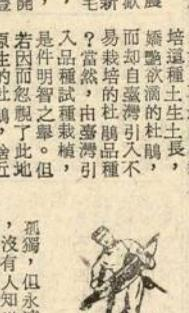 培這種土生土長，
嬌艷欲滴的杜鵑，
而却自臺灣引入不
易栽培的杜鵑品種
？當然，由臺灣引
入品種試種栽植，
是件明智之舉。但
若因而忽視了此地
原生的杜鵑，捨近
孤獨，但永
，沒有人知